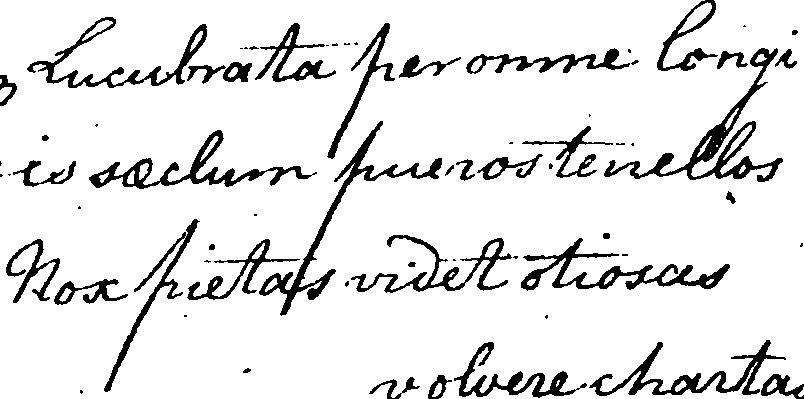 Lucubrata per omne longi
is sæclum pueros tenellos
Nox pietas videt otiosas
volvere chartas